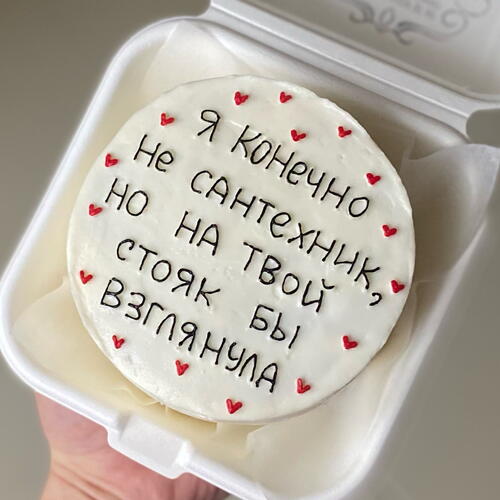 Я КОНЕЧНО
НЕ САНТЕХНИК,
НО НА ТВОЙ
СТОЯК БЫ
ВЗГЛЯНУЛА